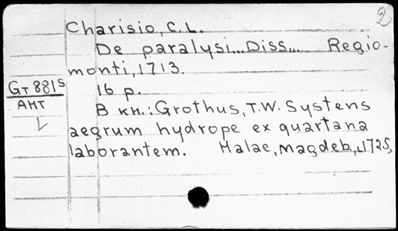 2
Charisio, C.L.
De paralysi...Diss... Regio-
monti, 1713.
Gт 881s
16 p.
АНТ
В кн.: Grothus, T.W. Systens
aegrum hydrope ex quartana
laborantem. Halae, magdeb., 1725,